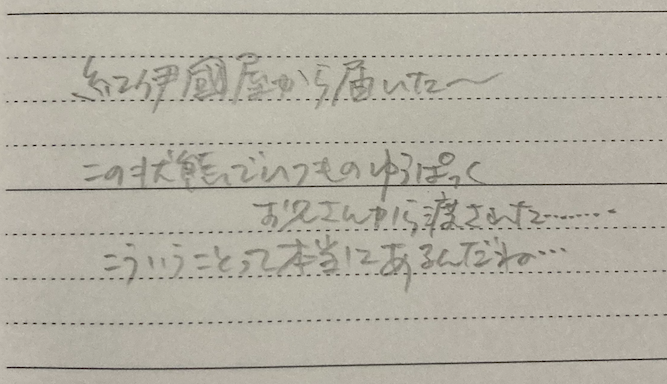 紀伊國屋から届いた〜
この状態でいつものゆうぱっく
お兄さんから渡された………
こういうことって本当にあるんだね…